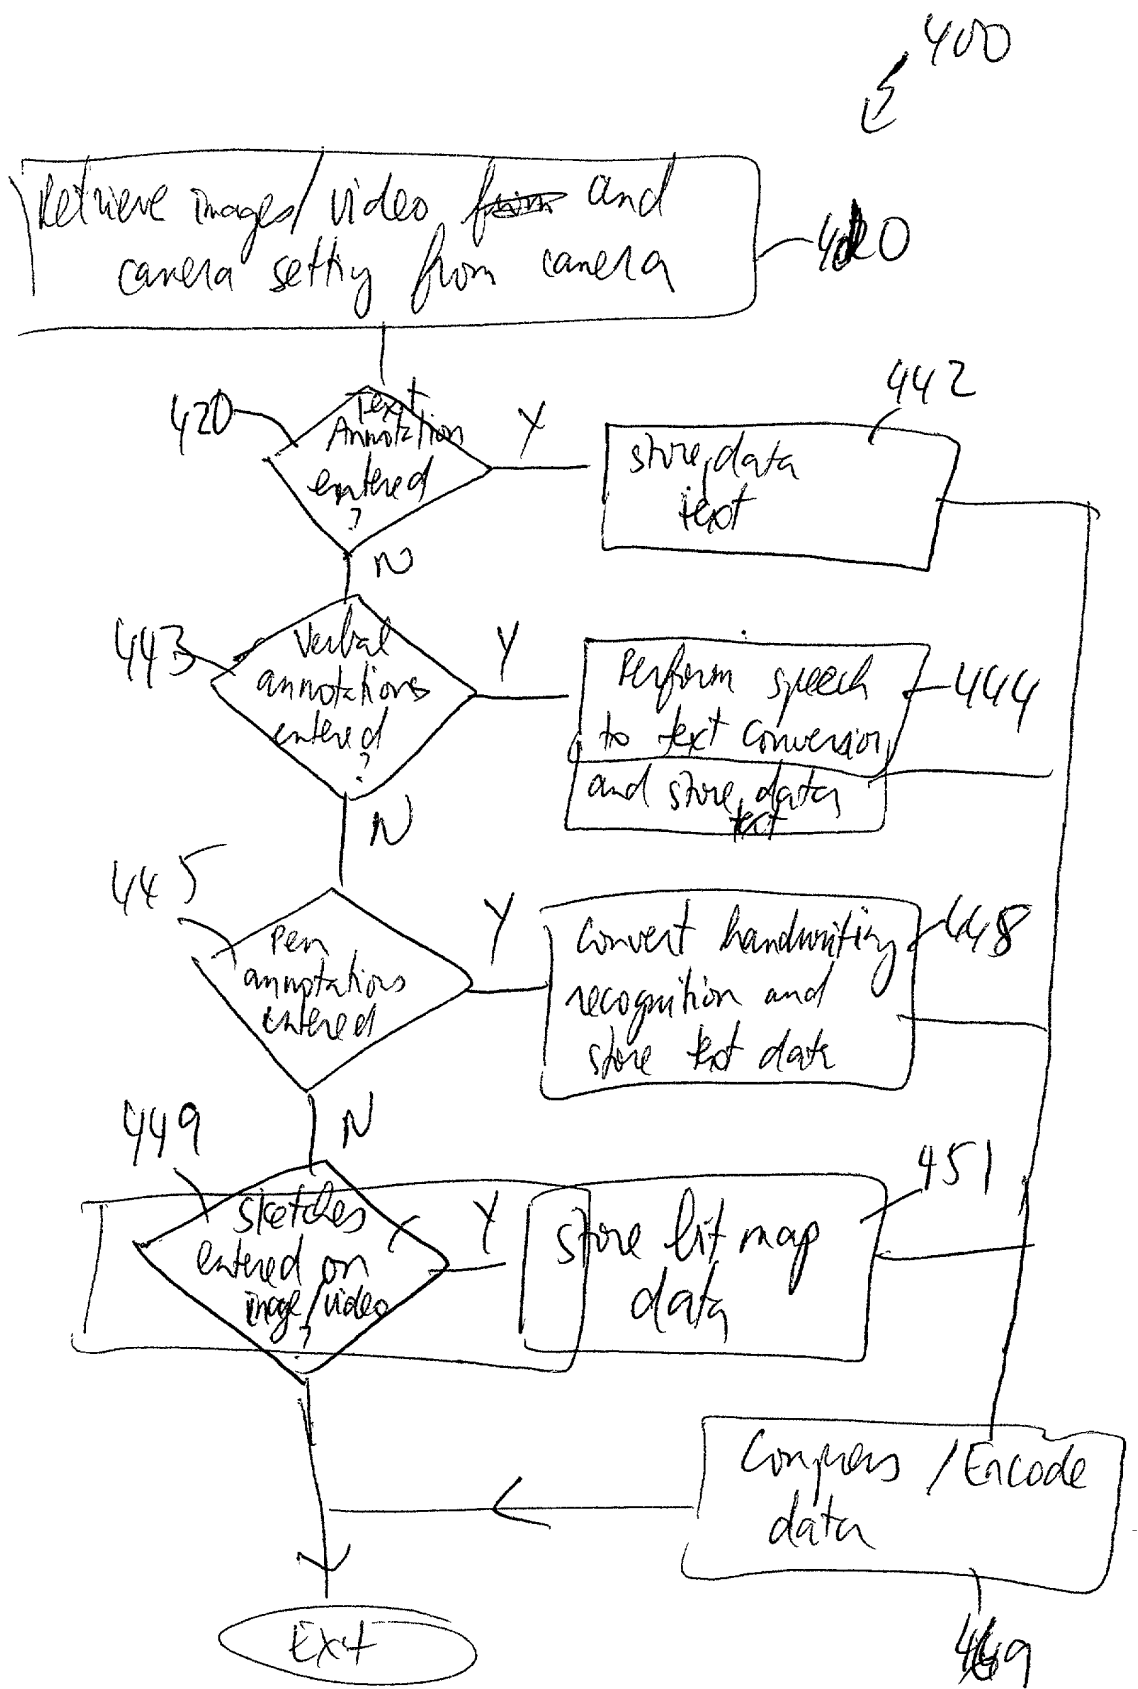 400
Retrieve images/video and
camera setting from camera
420
Text
Annotation
entered
?
Y
442
store data
text
N
443
Verbal
annotations
entered
?
Y
Perform speech
to text conversion
and store data
text
444
N
445
Pen
annotations
entered
Y
Convert handwriting
recognition and
store text data
448
N
449
Sketches
entered on
image/video
?
Y
store bit map
data
451
Compress / Encode
data
Exit